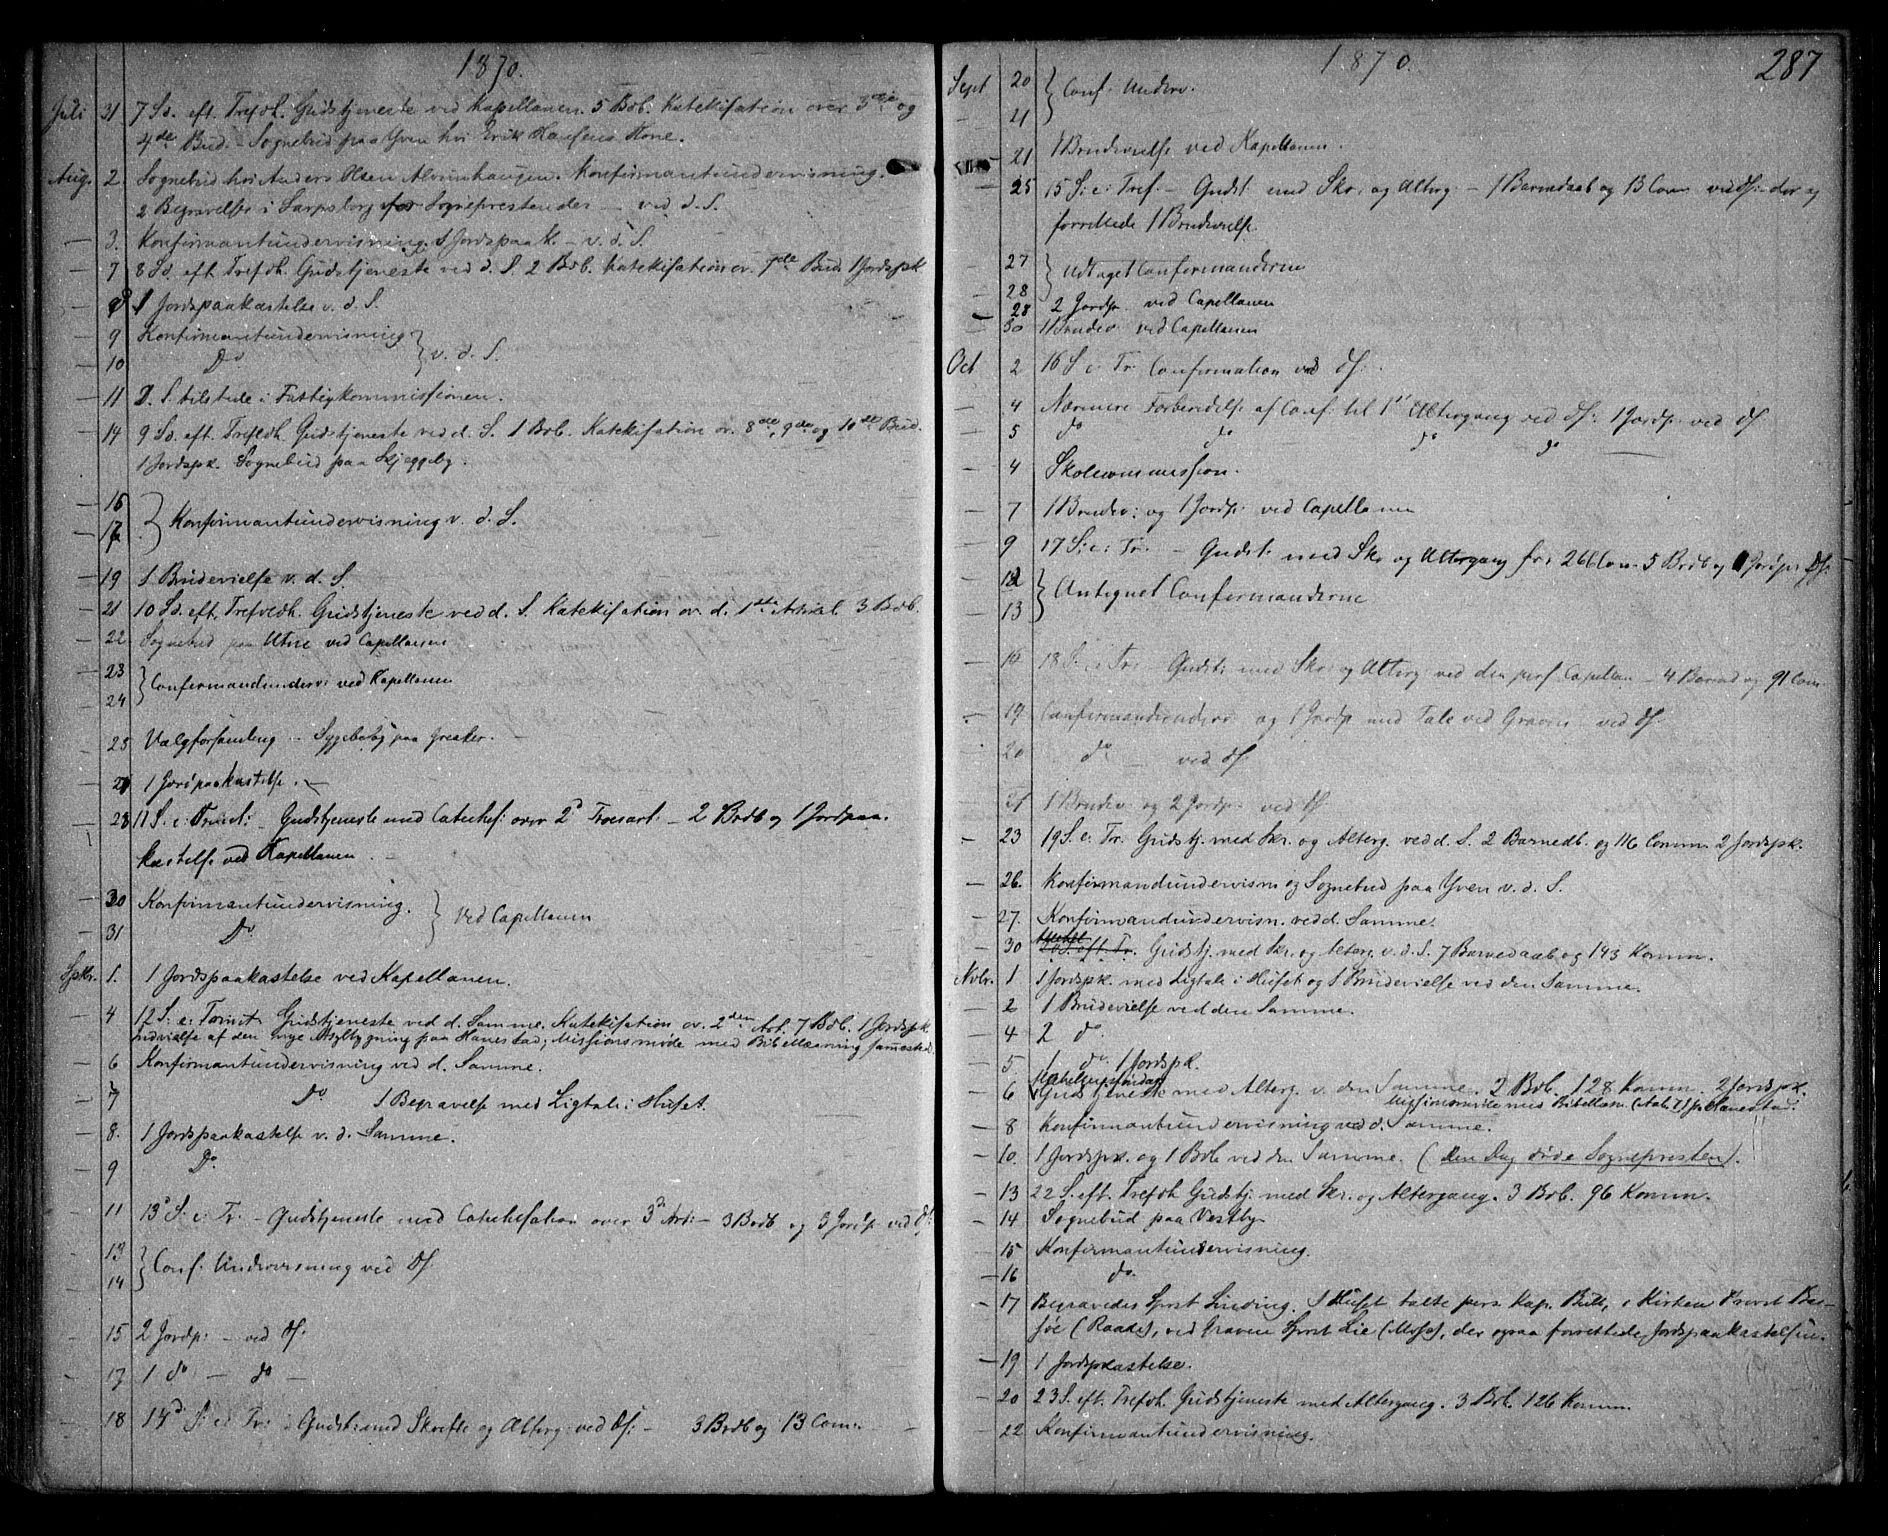 1870.
Juli 31 7 Sd. eft. Trefdh. Gudstjeneste ved Kapellanen. 5 Bdb. Katekisation over 3die og
4de Bud. - Sognebud paa Yven hos Erik Hansens Kone.
Aug. 2. Sognebud hos Anders Olsen Alvimhaugen. Konfirmantundervisning.
2 Begravelser i Sarpsborg Sogneprestens - ved d. S.
— 3. Konfirmantundervisning. 1 Jordspaak. - v. d. S.
— 7 8 Sd. eft. Trefdh. Gudstjeneste ved d. S. 2 Bdb. Katekisation ov. 7de Bud 1 Jordspk
— 8 1 Jordspaakastelse v. d. S.
— 9 Konfirmantundervisning } v. d. S.
— 10 Do
— 11 D. S. tilstede i Fattigkommissionen.
— 14 9 Sd. eft. Trefdh. Gudstjeneste ved d. S. 1 Bdb. Katekisation ov. 8de, 9de og 10de Bud.
1 Jordspk. Sognebud paa Skjeggeby.
— 16
— 17 } Konfirmantundervisning v. d. S.
— 19 1 Brudevielse v. d. S.
— 21 10 Sd. eft. Trefoldh. Gudstjeneste ved d. S. Katekisation ov. d. 1ste Artikel 3 Bdb.
— 22 Sognebud paa Utne ved Capellanen
— 23
— 24 } Confirmandunderv: ved Kapellanen
— 25 Valgforsamling - Sygebesøg paa Greaker. —
— 1 Jordpaakastelse. —
— 28 11 S. e. Trinit: - Gudstjeneste med Catechis: over 2d Troesart: - 2 Brdb og 1 Jordpaa-
kastelse ved Kapellanen.
— 30 Konfirmantundervisning. } ved Capellanen
— 31 Do
Spbr. 1. 1 Jordspaakastelse ved Kapellanen.
— 4 12 S. e. Trinit. Gudstjeneste ved d. Samme. Katekisation ov. 2den Art. 7 Bdb. 1 Jordspk
Indvielse af den nye Asylbygning paa Hanestad; Missionsmøde med Bibellæsning sammested.
— 6 Konfirmantundervisning ved d. Samme.
— 7 Do 1 Begravelse med Ligtale i Huset.
— 8. 1 Jordspaakastelse v. d. Samme.
— 9 Do
— 11 13d S. e. Tr. - Gudstjeneste med Catechisation over 3d Art: - 3 Brdb og 3 Jordp. ved Ds:
— 13
— 14 } Conf: Undervisning ved Ds:
— 15 2 Jordp: - ved Ds:
— 17 1 do — do —
— 18 14d S: e: Tr: - Gudst: med Skrifte og Alterg: ved Ds: - 3 Brdb og 13 Com: —
1870.
287
Sept 20
— 21 } Conf: Underv.
— 21 1 Brudevielse ved Kapellanen.
— 25 15 S: e: Tref: - Gudst: med Skr: og Alterg: - 1 Barnedaab og 13 Com: ved Ds: - der og
forrettede 1 Brudevielse.
— 27
— 28 } Udtaget Confirmanderne
— 28 2 Jordp. ved Capellanen
— 30 1 Brudev: ved Capellanen
Oct 2 16 S e: Tr: Confirmation ved Ds:
— 4 Nærmere Forberedelse af Conf: til 1ste Altergang ved Ds: 1 Jordp: ved Ds
— 5 do do do do
— 4 Skolecommission.
— 7 1 Brudev: og 1 Jordp: ved Capellanen
— 9 17 S: e: Tr. - Gudst: med Skr og Altergang for 266 Com. 5 Brdb og 1 Jordp: Ds:
— 12
— 13 } Antegnet Confirmanderne
— 16 18 S. e. Tr: - Gudst: med Skr: og Alterg: ved den pers. Capellan - 4 Barned og 91 Com.
— 19 Confirmandunderv og 1 Jordp med Tale ved Graven - ved Ds:
— 20 do — ved Ds:
— 21 1 Brudev: og 2 Jordp: ved Ds
— 23 19 S. e. Tr. Gudstj. med Skr. og Alterg. ved d. S. 2 Barnedb. og 116 Comm. 2 Jordspk.
— 26. Konfirmandundervisn og Sognebud paa Yven v. d. S.
— 27. Konfirmandundervisn. ved d. Samme.
— 30 20 S. eft. Tr. Gudstj. med Skr. og Alterg. v. d. S. 7 Barnedaab og 143 Komm.
Novbr. 1 1 Jordspk. med Ligtale i Huset og 1 Brudevielse ved den Samme.
— 2 1 Brudevielse ved den Samme.
— 4 2 do.
— 5 1 do. 1 Jordspk.
— 6 Gudstjeneste med Alterg. v. den Samme. 2 Bdb. 128 Komm. 2 Jordspk.
Missionsmøde med Bibellæsn. p. Hanestad.
— 8 Konfirmantundervisning ved d. Samme.
— 10. 1 Jordspk. og 1 Bdb ved den Samme. (Den Dag døde Sognepresten).
— 13 22 S. eft. Trefdh Gudstj. med Skr. og Altergang. 3 Bdb. 96 Komm.
— 14 Sognebud paa Vestby
— 15 Konfirmantundervisning.
— 16 do.
— 17 Begravedes Sprst Linding. I Huset talte pers. Kap. Bull, i Kirken Provst Bas-
søe (Raade), ved Graven Sprst Lie (Moss), der ogsaa forrettede Jordspaakastelsen.
— 19 1 Jordspkastelse.
— 20 23 S. eft. Trefdh. Gudstjeneste med Altergang. 3 Bdb. 126 Komm.
— 22 Konfirmantundervisning.